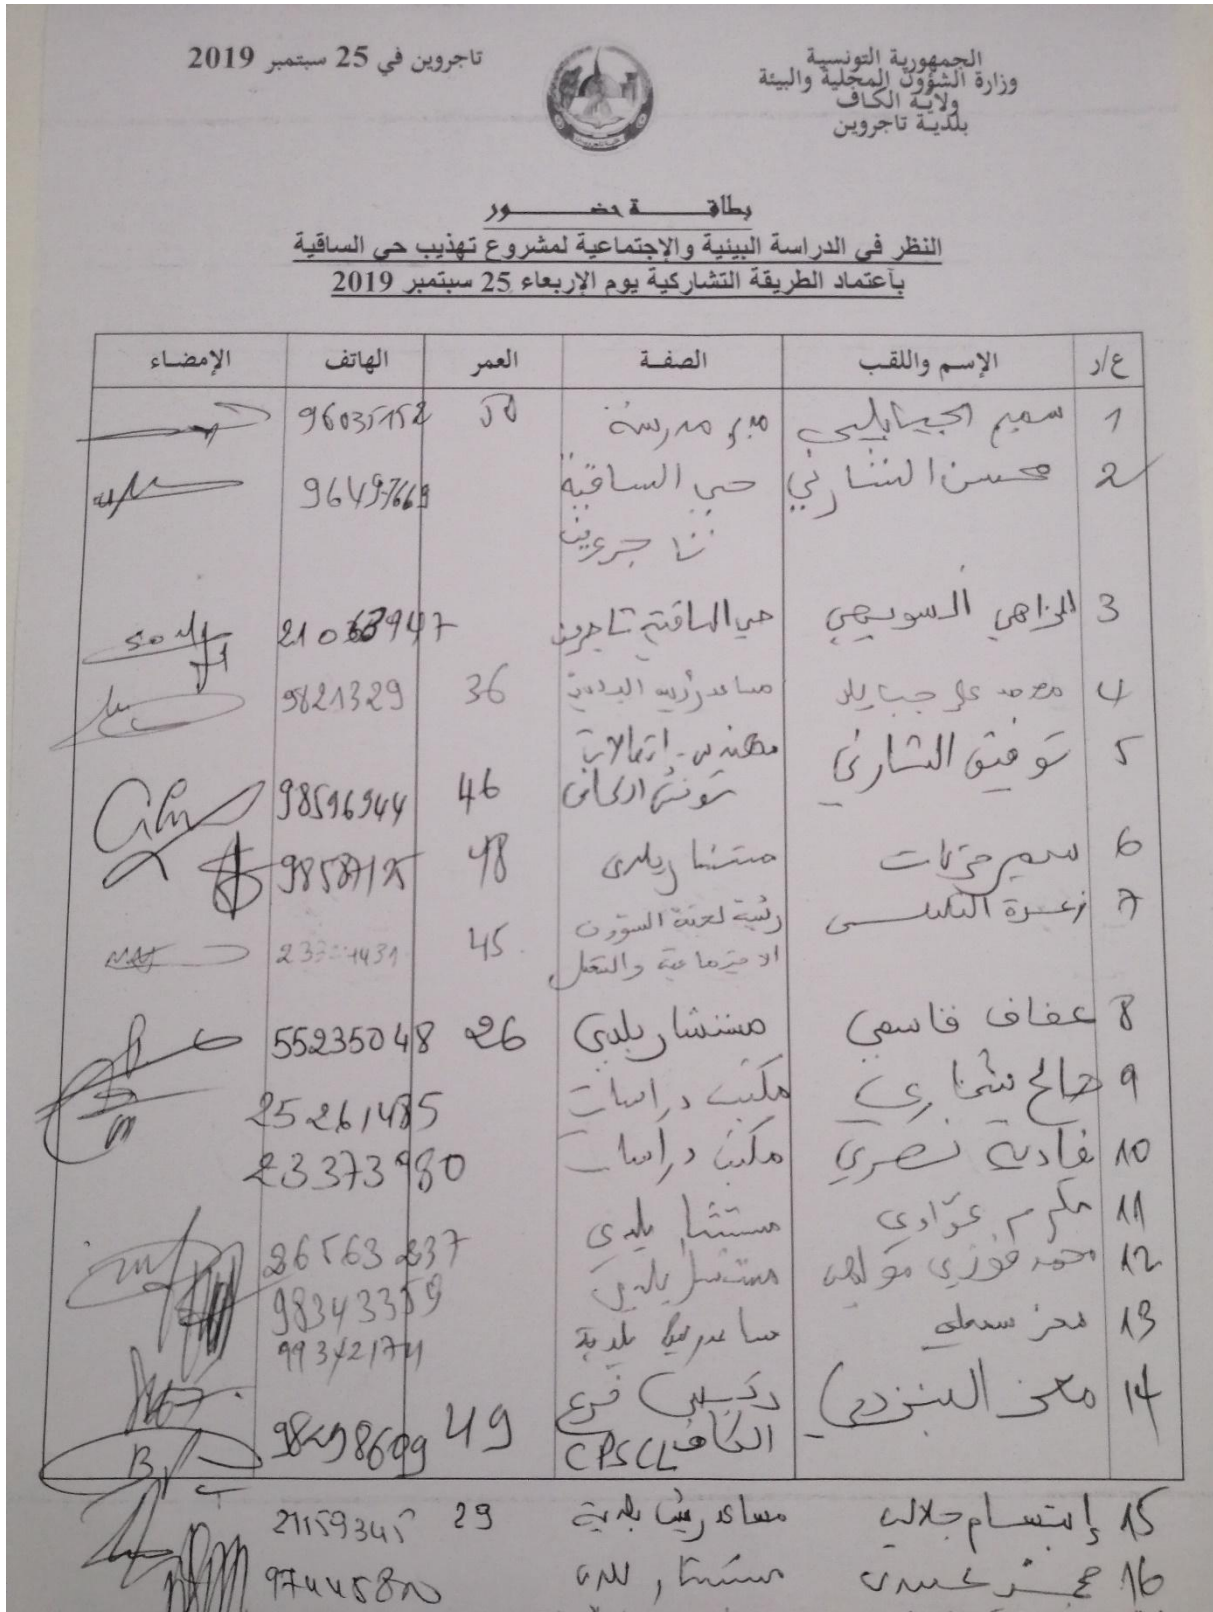 الجمهورية التونسية
وزارة الشؤون المحلية والبيئة
ولاية الكاف
بلدية تاجروين
تاجروين في 25 سبتمبر 2019
بطاقة حضور
النظر في الدراسة البيئية والإجتماعية لمشروع تهذيب حي الساقية
بآعتماد الطريقة التشاركية يوم الإربعاء 25 سبتمبر 2019
ع/ر الإسم واللقب الصفة العمر الهاتف الإمضاء
1 سميم مدير مدرسة 50 96035152
2 محسن الشارني حي الساقية
تاجروين
3 الزاهي السويهي حي الساقية تاجروين
4 محمد علي جبايلي 36 9821329
5 توفيق الشارني مهندس إتصالات
تونس الكاف 46 98596944
6 سمير مستشار بلدي 48
7 زهرة رئيسة لجنة الشؤون
الاجتماعية والشغل 45
8 عفاف قاسمي مستشار بلدي 26 55235048
9 صالح مكتب دراسات 25261485
10 نادية نصري مكتب دراسات 23373980
11 مكرم عوادي مستشار بلدي 26563237
12 محمد فوزي مستشار بلدي 98343359
13 بلدية
14 معز البنزرتي رئيس فرع
الكاف CPSCL 49 98298609
15 إبتسام جلالي مساعد رئيس بلدية 29 21159345
16 مستشار بلدي